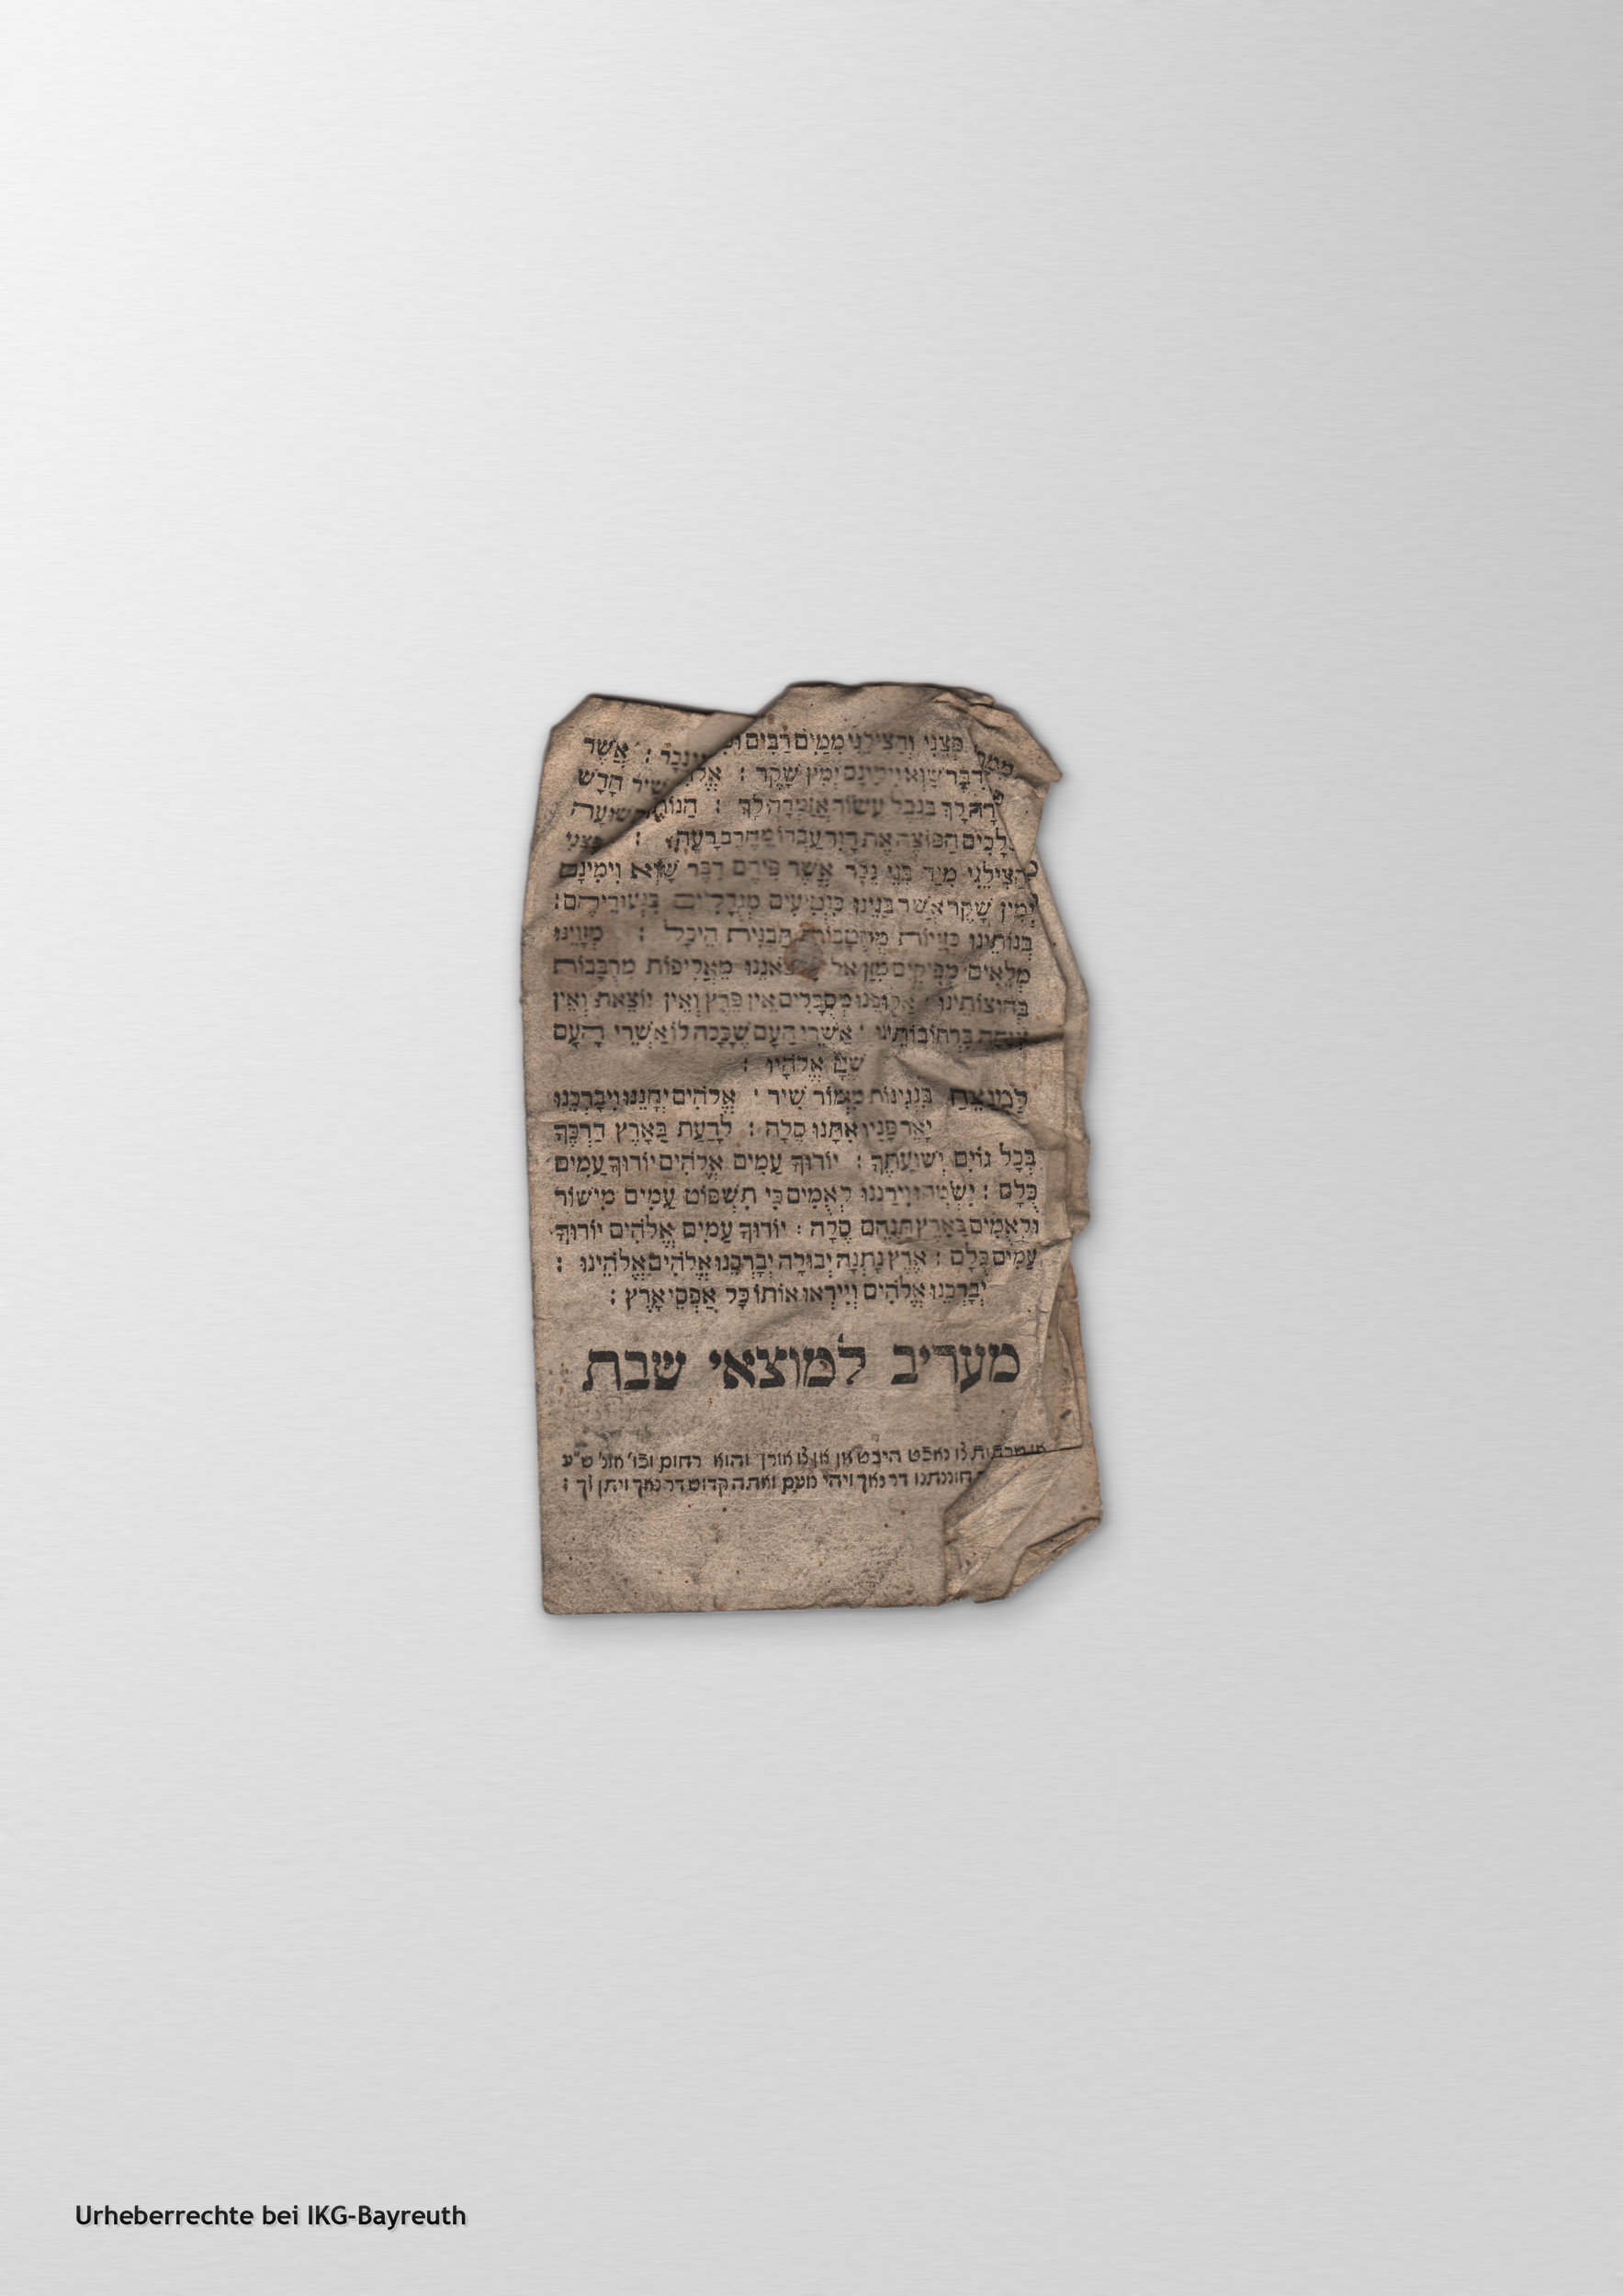 פְּצֵנִי וְהַצִּילֵנִי מִמַּיִם רַבִּים נֵכָר : אֲשֶׁר
דִּבֶּר שָׁוְא וִימִינָם יְמִין שָׁקֶר : שִׁיר חָדָשׁ
לָךְ בְּנֵבֶל עָשׂוֹר אֲזַמְּרָה לָּךְ : הַנּוֹתֵן תְּשׁוּעָה
הַפּוֹצֶה אֶת דָּוִד עַבְדּוֹ מֵחֶרֶב רָעָה : פְּצֵנִי
וְהַצִּילֵנִי מִיַּד בְּנֵי נֵכָר אֲשֶׁר פִּיהֶם דִּבֶּר שָׁוְא וִימִינָם
יְמִין שָׁקֶר אֲשֶׁר בָּנֵינוּ כִּנְטִיעִים מְגֻדָּלִים בִּנְעוּרֵיהֶם :
בְּנוֹתֵינוּ כְזָוִיּוֹת מְחֻטָּבוֹת תַּבְנִית הֵיכָל : מְזָוֵינוּ
מְלֵאִים מְפִיקִים מִזַּן אֶל צֹאנֵנוּ מַאֲלִיפוֹת מְרֻבָּבוֹת
בְּחוּצוֹתֵינוּ : אַלּוּפֵנוּ מְסֻבָּלִים אֵין פֶּרֶץ וְאֵין יוֹצֵאת וְאֵין
צְוָחָה בִּרְחוֹבוֹתֵינוּ : אַשְׁרֵי הָעָם שֶׁכָּכָה לּוֹ אַשְׁרֵי הָעָם
אֱלֹהָיו :
לַמְנַצֵּחַ בִּנְגִינוֹת מִזְמוֹר שִׁיר : אֱלֹהִים יְחָנֵּנוּ וִיבָרְכֵנוּ
יָאֵר פָּנָיו אִתָּנוּ סֶלָה : לָדַעַת בָּאָרֶץ דַּרְכֶּךָ
בְּכָל גּוֹיִם יְשׁוּעָתֶךָ : יוֹדוּךָ עַמִּים אֱלֹהִים יוֹדוּךָ עַמִּים
כֻּלָּם : יִשְׂמְחוּ וִירַנְּנוּ לְאֻמִּים כִּי תִשְׁפּוֹט עַמִּים מִישׁוֹר
וּלְאֻמִּים בָּאָרֶץ תַּנְחֵם סֶלָה : יוֹדוּךָ עַמִּים אֱלֹהִים יוֹדוּךָ
עַמִּים כֻּלָּם : אֶרֶץ נָתְנָה יְבוּלָהּ יְבָרְכֵנוּ אֱלֹהִים אֱלֹהֵינוּ :
יְבָרְכֵנוּ אֱלֹהִים וְיִירְאוּ אוֹתוֹ כָּל אַפְסֵי אָרֶץ :
מעריב למוצאי שבת
צו נאכט היבט אן אן צו אורן והוא רחום וכו'
חוננתנו דר נאך ויהי נועם ואתה קדוש דר נאך ויתן לך :
Urheberrechte bei IKG-Bayreuth